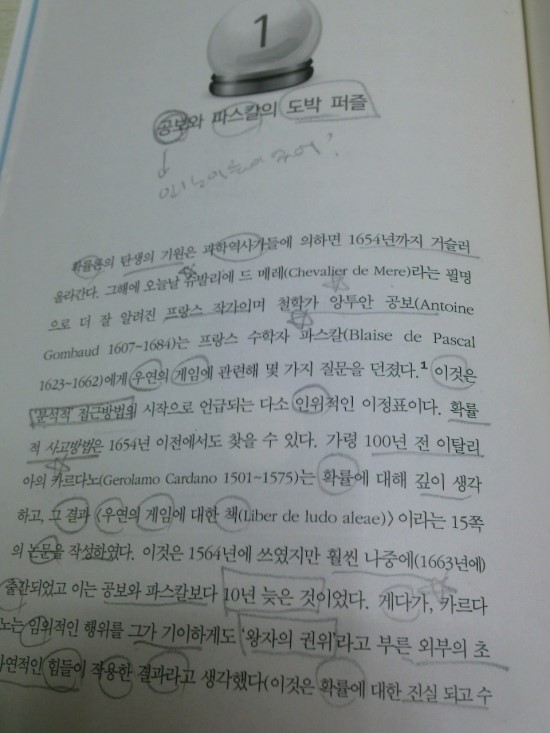 1
공보와 파스칼의 도박 퍼즐
확률론의 탄생의 기원은 과학역사가들에 의하면 1654년까지 거슬러
올라간다. 그해에 오늘날 슈발리에 드 메레(Chevalier de Mere)라는 필명
으로 더 잘 알려진 프랑스 작가이며 철학가 앙투안 공보(Antoine
Gombaud 1607~1684)는 프랑스 수학자 파스칼(Blaise de Pascal
1623~1662)에게 우연의 게임에 관련해 몇 가지 질문을 던졌다.1 이것은
'분석적' 접근방법의 시작으로 언급되는 다소 인위적인 이정표이다. 확률
적 사고방법은 1654년 이전에서도 찾을 수 있다. 가령 100년 전 이탈리
아의 카르다노(Gerolamo Cardano 1501~1575)는 확률에 대해 깊이 생각
하고, 그 결과 〈우연의 게임에 대한 책(Liber de ludo aleae)〉이라는 15쪽
의 논문을 작성하였다. 이것은 1564년에 쓰였지만 훨씬 나중에(1663년에)
출간되었고 이는 공보와 파스칼보다 10년 늦은 것이었다. 게다가, 카르다
노는 임위적인 행위를 그가 기이하게도 '왕자의 권위'라고 부른 외부의 초
자연적인 힘들이 작용한 결과라고 생각했다(이것은 확률에 대한 진실 되고 수